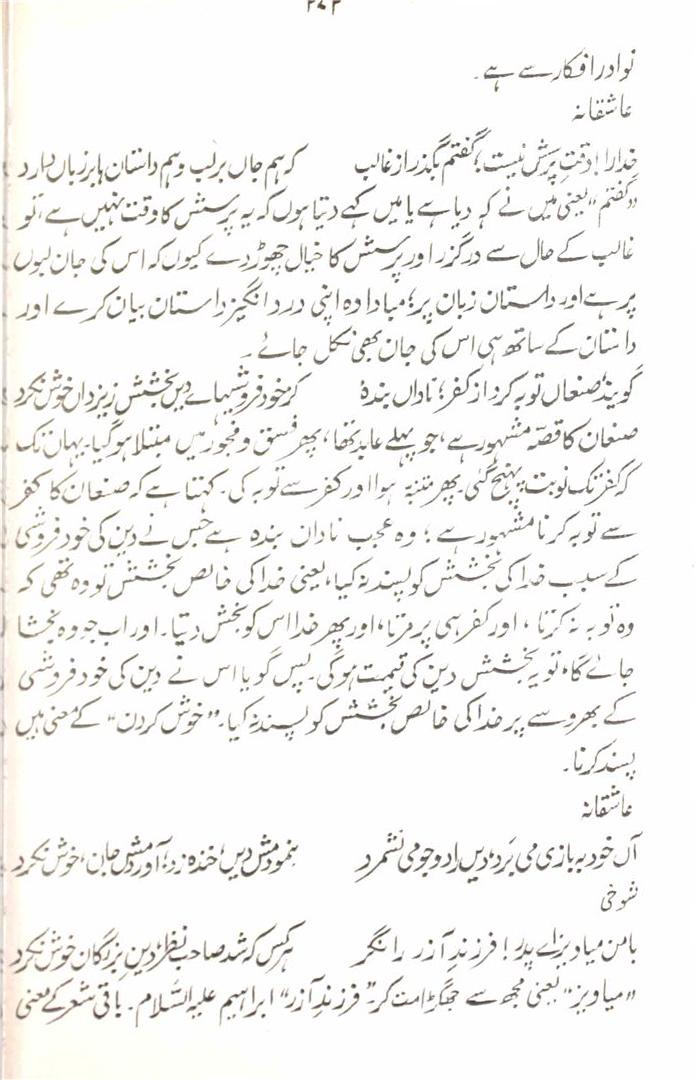 ۲۷۲
نوادر افکار سے ہے۔
عاشقانہ
خدا را! وقتِ پرسش نیست، گفتم بگذر از غالب کہ ہم جاں بر لب و ہم داستاں ہا بر زباں دارد
"گفتم" یعنی میں نے کہ دیا ہے یا میں کہے دیتا ہوں کہ یہ پرسش کا وقت نہیں ہے، تو
غالب کے حال سے درگزر اور پرسش کا خیال چھوڑ دے کیوں کہ اس کی جان لبوں
پر ہے اور داستان زبان پر؛ مبادا وہ اپنی درد انگیز داستان بیان کرے اور
داستان کے ساتھ ہی اس کی جان بھی نکل جائے۔
گویند صنعاں توبہ کرد از کفر؛ ناداں بندۂ کز خود فروشیہاے دیں بخشش ز یزداں خوش نکرد
صنعان کا قصّہ مشہور ہے، جو پہلے عابد تھا، پھر فسق و فجور میں مبتلا ہو گیا۔ یہاں تک
کہ کفر تک نوبت پہنچ گئی پھر متنبہ ہوا اور کفر سے توبہ کی۔ کہتا ہے کہ صنعان کا کفر
سے توبہ کرنا مشہور ہے؛ وہ عجب ناداں بندہ ہے جس نے دین کی خود فروشی
کے سبب خدا کی بخشش کو پسند نہ کیا، یعنی خدا کی خالص بخشش تو وہ تھی کہ
وہ توبہ نہ کرتا، اور کفر ہی پر مرتا، اور پھر خدا اس کو بخش دیتا۔ اور اب جو وہ بخشا
جائے گا، تو یہ بخشش دین کی قیمت ہوگی۔ پس گویا اس نے دین کی خود فروشی
کے بھروسے پر خدا کی خالص بخشش کو پسند نہ کیا۔ "خوش کردن" کے معنی ہیں
پسند کرنا۔
عاشقانہ
آں خود بہ بازی می برَد، دیں را دو جو می نشمرد بنمودمش دیں، خندہ زد؛ آوردمش جاں، خوش نکرد
شوخی
با من میاویز اے پدر! فرزندِ آزر را نگر ہر کس کہ شد صاحب نظر، دینِ بزرگاں خوش نکرد
"میاویز" یعنی مجھ سے جھگڑا مت کر۔ "فرزندِ آزر" ابراہیم علیہ السّلام۔ باقی شعر کے معنی